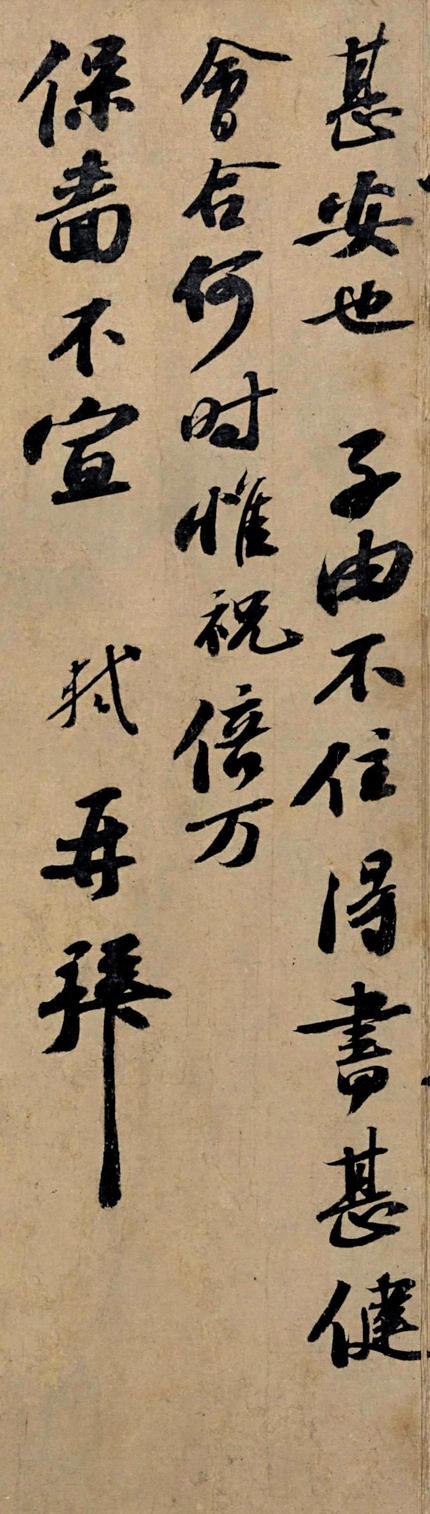 甚安也 子由不住得書甚健
會合何时惟祝倍万
保嗇不宣 軾再拜